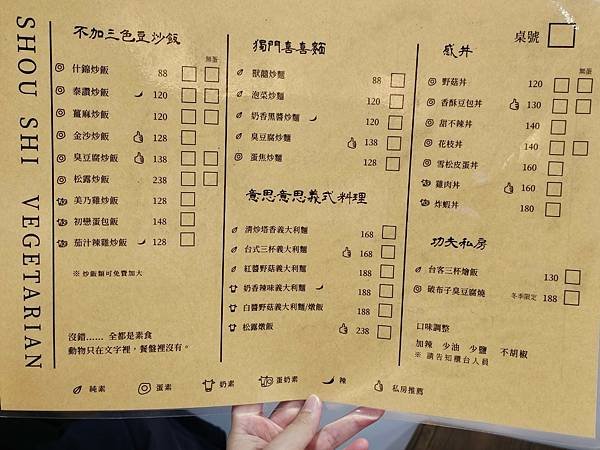 SHOU SHI VEGETARIAN
不加三色豆炒飯
無蛋
什錦炒飯 88
泰讚炒飯 120
薑麻炒飯 120
金沙炒飯 138
臭豆腐炒飯 138
松露炒飯 238
美乃雞炒飯 128
初戀蛋包飯 148
茄汁辣雞炒飯 128
※ 炒飯類可免費加大
沒錯...... 全都是素食
動物只在文字裡，餐盤裡沒有。
獨門喜喜麵
獸龍炒麵 88
泡菜炒麵 120
奶香黑醬炒麵 120
臭豆腐炒麵 138
蛋焦炒麵 128
意思意思義式料理
清炒塔香義大利麵 168
台式三杯義大利麵 168
紅醬野菇義大利麵 188
奶香辣味義大利麵 188
白醬野菇義大利麵/燉飯 188
松露燉飯 238
桌號
感丼
無蛋
野菇丼 120
香酥豆包丼 130
甜不辣丼 140
花枝丼 140
雪松皮蛋丼 160
雞肉丼 160
炸蝦丼 180
功夫私房
台客三杯燴飯 130
破布子臭豆腐燒 冬季限定 188
口味調整
加辣 少油 少鹽 不胡椒
※ 請告知櫃台人員
純素 蛋素 奶素 蛋奶素 辣 私房推薦